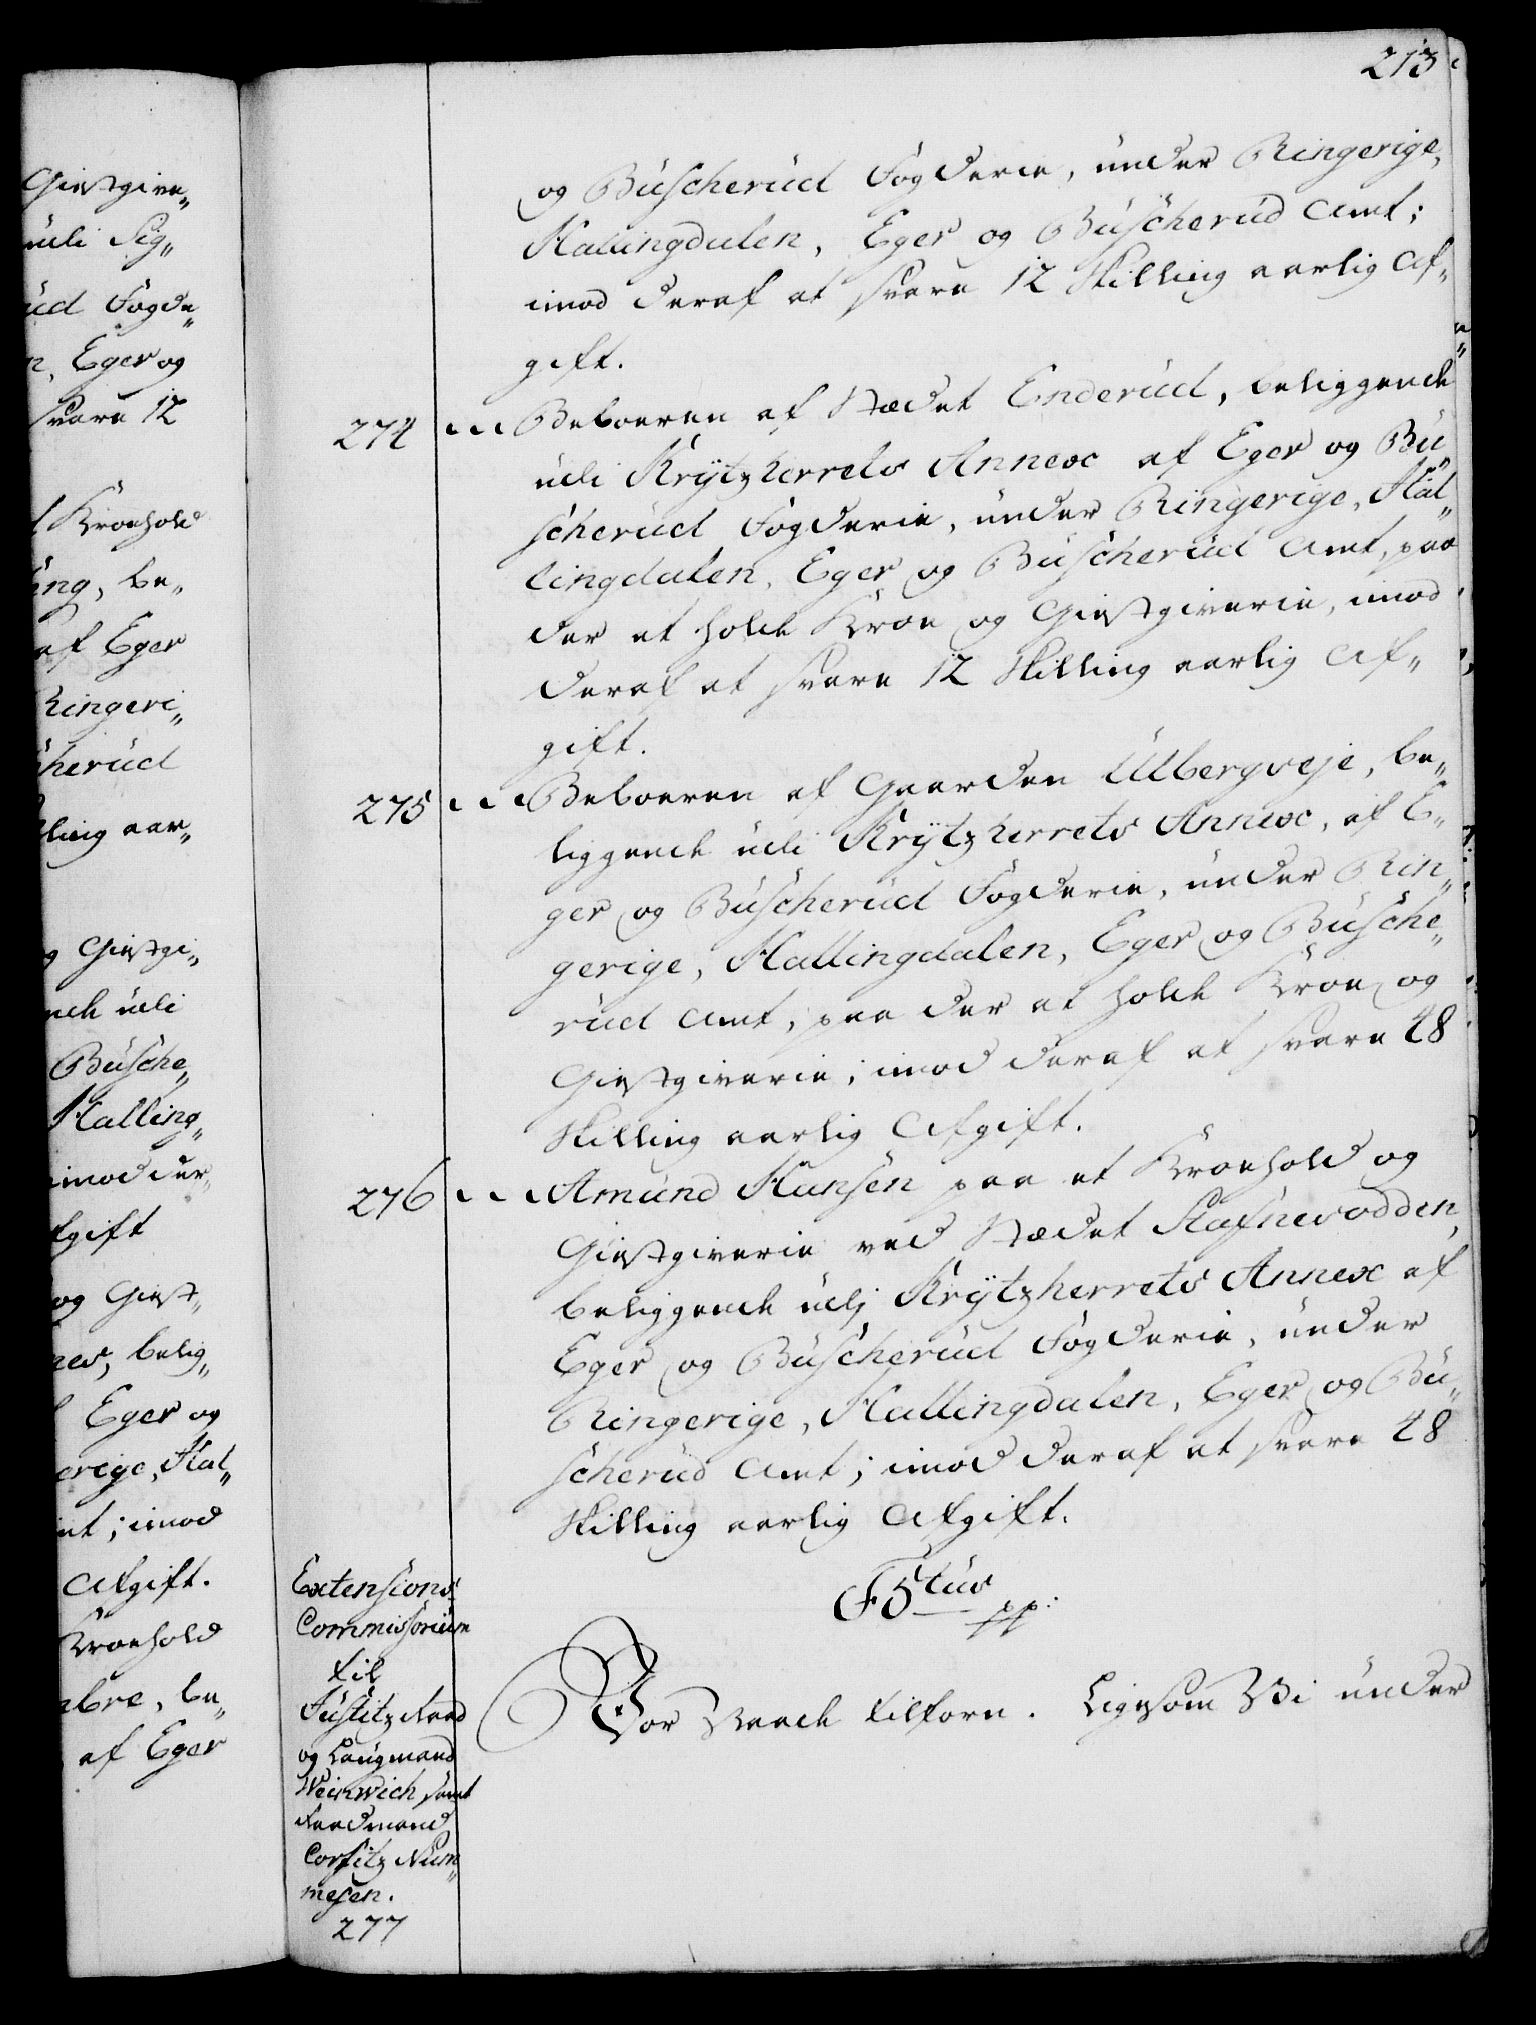 213
og Buscherud Fogderie, under Ringerige,
Hallingdalen, Eger og Buscherud Amt;
imod deraf at svare 12 Skilling aarlig Af„
gift.
274 Beboeren af Stædet Enderud, beliggende
udi Krytzherrets Annex af Eger og Bu„
scherud Fogderie, under Ringerige, Hal„
lingdalen, Eger og Buscherud Amt, paa
der at holde Kroe og Giestgiverie, imod
deraf at svare 12 Skilling aarlig Af„
gift.
275 Beboeren af Gaarden Ulbergveje, be„
liggende udi Krytzherrets Annex, af E„
ger og Buscherud Fogderie, under Rin„
gerige, Hallingdalen, Eger og Busche„
rud Amt, paa der at holde Kroe og
Giestgiverie; imod deraf at svare 48
Skilling aarlig Afgift.
276 Amund Hansen paa et Kroehold og
Giestgiverie ved Stædet Stafnesodden,
beliggende udj Krytzherrets Annex af
Eger og Buscherud Fogderie, under
Ringerige, Hallingdalen, Eger og Bu„
scherud Amt; imod deraf at svare 48
Skilling aarlig Afgift.
C F 5tus pp:
Extensions
Commissorium
til
Justitz Raad
og Laugmand
Weinwich samt
Raadmand
Corfitz Num„
mesen.
277
Vor Naade tilforn. Ligesom Vi under
Giestgive„
udi Sig„
ud Fogde„
n, Eger og
svare 12
Kroehold
ing, be„
af Eger
Ringeri„
cherud
lling aar„
og Giestgi„
ende udi
Busche„
Halling„
imod der„
fgift
og Giest„
nes, belig„
Eger og
erige, Hal„
mt; imod
Afgift.
Kroehold
abre, be„
af Eger